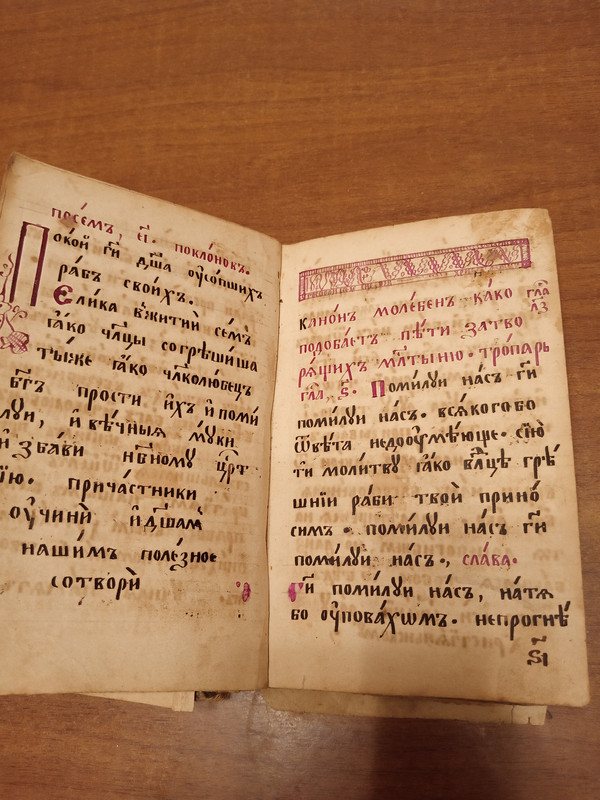 посе́мъ, є҃і. покло́нокъ.
Поко́й гд҃и дш҃а оу҆со́пшихъ
ра́бъ свои́хъ.
Єли́ка вжитїй се́мъ
ꙗ҆́ко чл҃цы согрѣши́ша
ты́же ꙗ҆́ко чл҃колю́бецъ
бг҃ъ прости и҆́хъ и҆ поми́
луи, и҆ вѣ́чныѧ му́ки
и҆ зба́ви нб҃ному црт҃
їю. прича́стники
оу҆чинѝ и҆ дш҃амъ
на́шимъ поле́зное
сотворѝ
Кано́нъ моле́бенъ ка́ко гла
подоба́етъ пѣ́ти затво л҃з
рѧ́щихъ мл҃тыню. тропа́рь
гла, ѕ҃. Поми́луи на́съ гд҃и
поми́луи на́съ. всѧ́кого бо
ѿвѣ́та недооу҆мѣ́юще. сїю̀
ти моли́тву ꙗ҆́ко влц҃ѣ грѣ́
шнїи раби твоѝ прино́
симъ. поми́луи на́съ гд҃и
поми́луи на́съ., сла́ва.
Гд҃и поми́луи на́съ, на тѧ́
бо оу҆пова́хѡмъ. не прогнѣ́
ѕ҃і